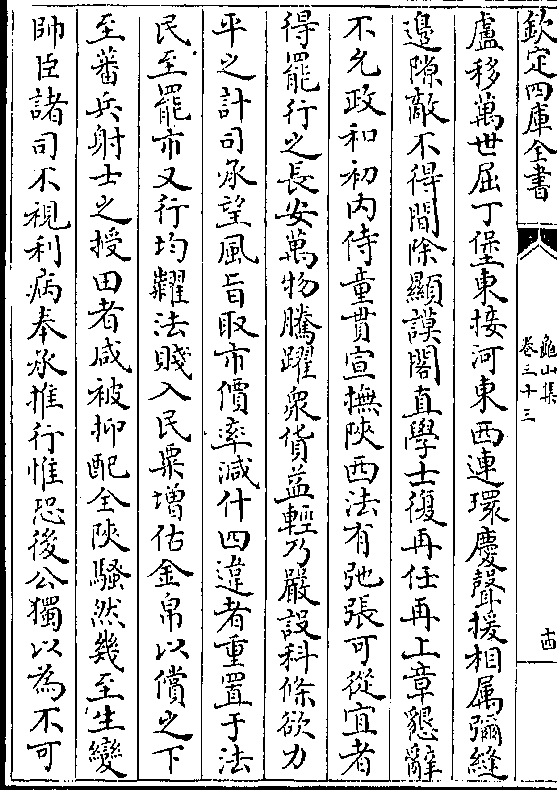 欽定四庫全書
龜山集
卷三十三
十四
盧移萬世屈丁堡東接河東西連環慶聲援相属彌縫
邊隙敵不得間除顯謨閣直學士復再任再上章懇辭
不允政和初内侍童貫宣撫陜西法有弛張可從宜者
得罷行之長安萬物騰躍衆貨益輕乃嚴設科條欲力
平之計司承望風旨取市價率減什四違者重置于法
民至罷市又行均糴法賤入民粟增估金帛以償之下
至蕃兵射士之授田者咸被抑配全陜騷然幾至生變
帥臣諸司不視利病奉承推行惟恐後公獨以為不可